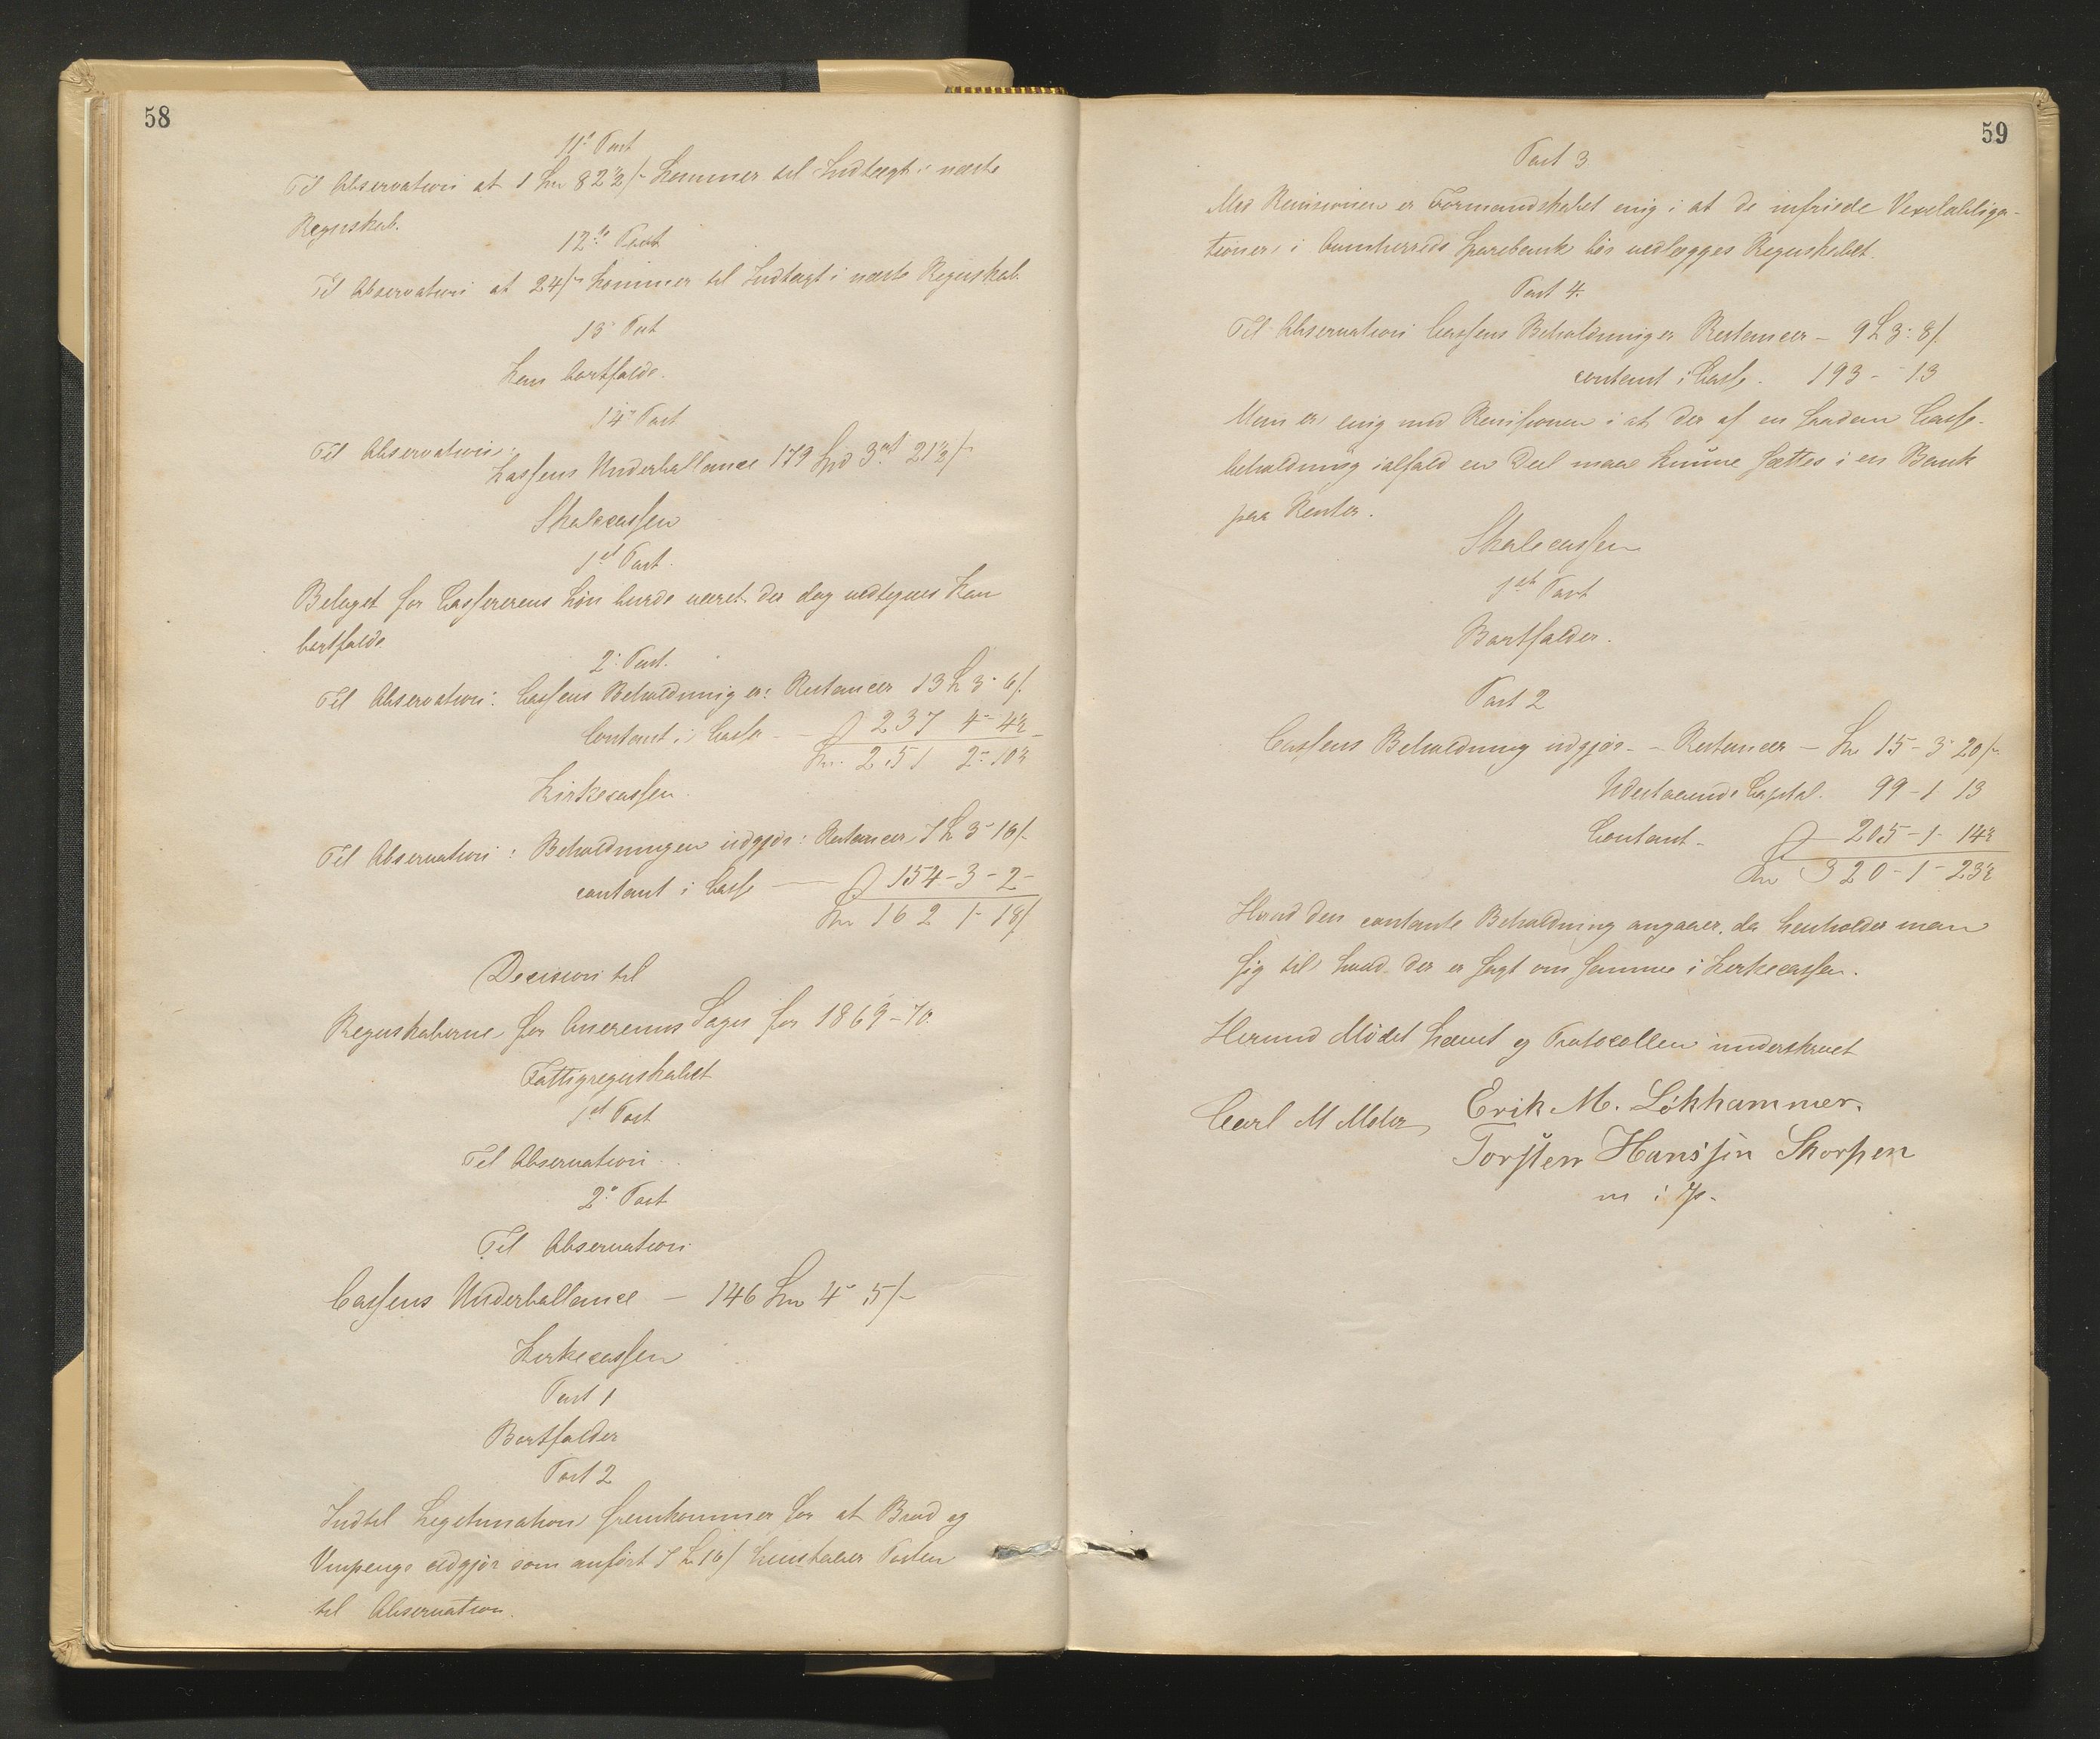 58
11te Post
Til Observation at 1 Spd 82½ s kommer til Indtægt i næste
Regnskab.
12te Post
Til Observation at 24 s kommer til Indtægt i næste Regnskab.
13 Post
Kan bortfalde.
14 Post
Til Observation.
Kassens Underballance 179 Spd 3 ort 21½ s
Skolecassen
1ste Post.
Belaget for Cassererens Løn burde været der dog vedtegnes Kan
bortfalde
2 Post.
Til Observation: Cassens Beholdning er: Restancer 13 S 3 - 6 s.
Contant i Casse - 237 4 - 4½
Spd. 251 2 - 10½
Kirkecassen.
Til Observation: Beholdningen udgjør: Restancer 7 S 3 - 16 s.
contant i Casse — 154 - 3 - 2 -
Spd 162 1 - 18 s
Decision til
Regnskaberne for Sogn for 1869-70.
Fattigregnskabet
1st Post
Til Observation
2 Post
Til Observation
Cassens Underballance - 146 Spd 4 - 5 s
Kirkecassen
Post 1
Bortfalder
Post 2
Indtil Legetimation fremkommer for at Brød og
Vinpenge udgjør som anført 7 S 16 s henstaaer Posten
til Observation.
59
Post 3
Med Revisionen er Formandskabet enig i at de infriede Vexelobliga-
tioner i Sparebank bør vedlægges Regnskabet.
Post 4.
Til Observation Cassens Beholdning er Restancer - 9 S 3 - 8 s.
contant i Casse. 193 - 13
Man er enig med Revisionen i at der af en saadan Casse-
beholdning ialfald en Deel maae kunne sættes i en Bank
paa Renter.
Skolecassen
1ste Post
Bortfalder.
Post 2
Cassens Beholdning udgjør - Restancer - Spd 15 - 3 20 s.
Udestaaende Capital. 99 - 1 13
Contant - 205 - 1 - 14½
Spd 320 - 1 - 23½
Hvad den contante Beholdning angaaer, da henholder man
sig til hvad der er sagt om samme i Kirkecassen.
Hermed Mødet hævet og Protocollen underskrevet
Carl M Møler Erik M. Løkhammer.
Torsten Hansøn Skorpen
m : p.